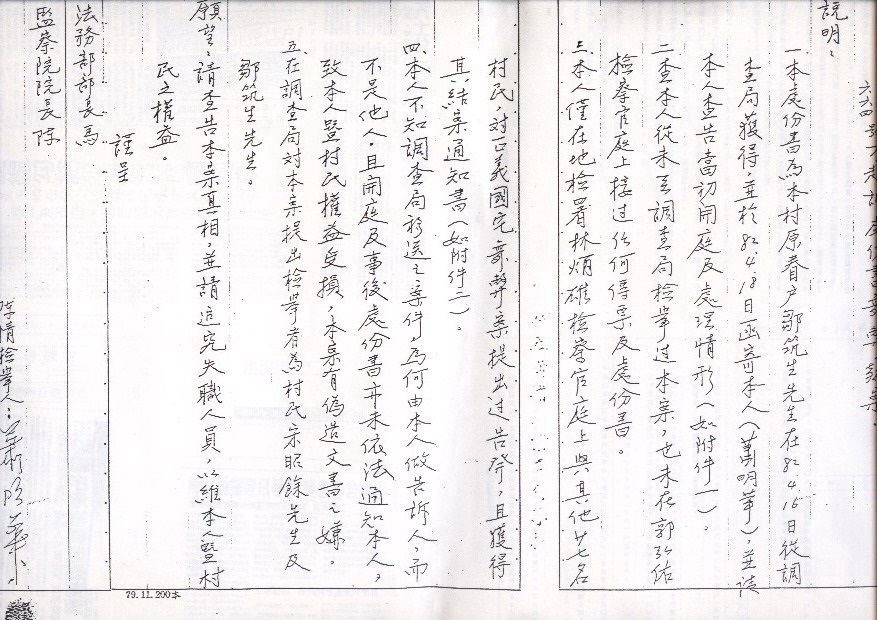 說明：
一本處份書為本村原眷户鄒筑生先生在82.4.16日從調
查局獲得，並於82.4.18日函寄本人（蕭明華），並請
本人查告當初開庭及處理情形（如附件一）。
二查本人從未至調查局檢舉过本案，也未在郭弘佑
檢察官庭上接过任何傳票及處份書。
三本人僅在地檢署林炳雄檢察官庭上與其他廿七名
村民，对正義國宅弊案提出过告發，且獲得
其結案通知書（如附件二）。
四、本人不知調查局移送之案件，為何由本人做告訴人，而
不是他人，且開庭及事後處份書亦未依法通知本人，
致本人暨村民權益受損，本案有偽造文書之嫌。
五在調查局对本案提出檢舉者為村民宗昭餘先生及
鄒筑生先生。
願望：請查告本案真相，並請追究失職人員，以維本人暨村
民之權益。
謹呈
法務部部長馬
監察院院長陳
陳情檢舉人：蕭明華
79.11.200本